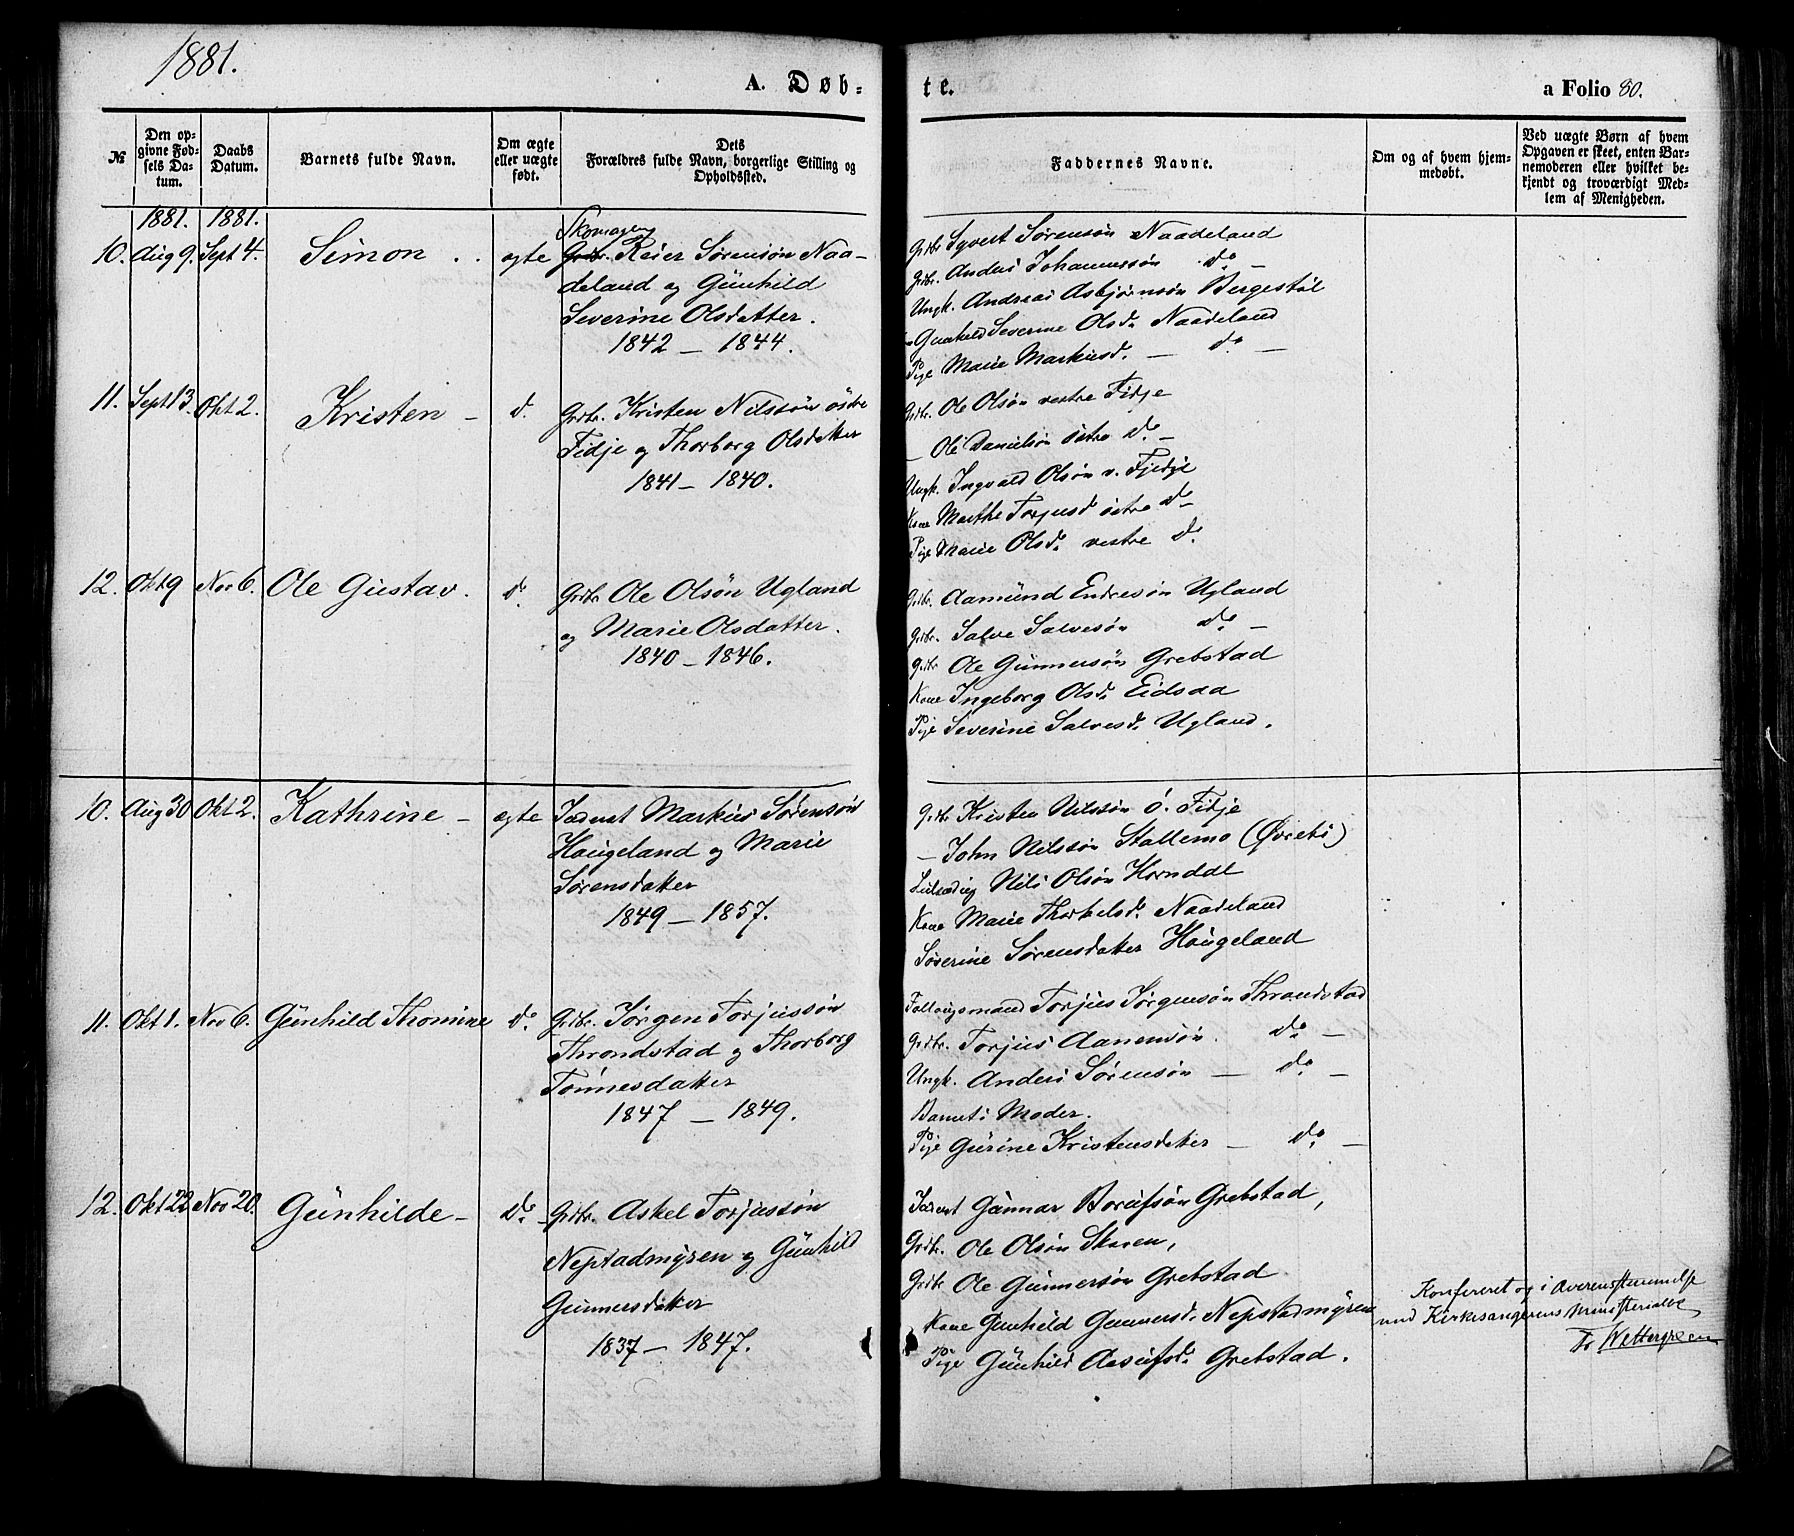 1881.
A. Døb-
te.
a Folio 80.
№
Den op-
givne Fød-
sels Da-
tum.
Daabs
Datum.
Barnets fulde Navn.
Om ægte
eller uægte
født.
Dets
Forældres fulde Navn, borgerlige Stilling og
Opholdssted.
Faddernes Navne.
Om og af hvem hjem-
medøbt.
Ved uægte Børn af hvem
Opgaven er skeet, enten Bar-
nemoderen eller hvilket be-
kjendt og troværdigt Med-
lem af Menigheden.
1881. 1881.
10. Aug 9. Sept 4. Simon . . ægte Grdbr. Reier Sørensøn Naa-
deland og Gunhild
Severine Olsdatter.
1842 – 1844.
Grdbr Syvert Sørensøn Naadeland
Grdbr. Anders Johannessøn do –
Ungk. Andreas Asbjørnsøn Bergestøl
Gunhild Severine Olsd. Naadeland
Pige Marie Markusd. – do –
11. Sept 13. Okt 2. Kristen – do Grdbr. Kristen Nilssøn östre
Fidje og Thorborg Olsdatter
1841 – 1840.
Grdbr. Ole Olsøn vestre Fidje
– Ole Danielsøn östre do –
Ungk. Ingvald Olsøn v. Fidje
Kone Marthe Torjusd östre do
Pige Marie Olsd. vestre do
12. Okt 9 Nov 6. Ole Gustav. do Grdbr Ole Olsøn Ugland
og Marie Olsdatter.
1840 – 1846.
Grdbr. Aamund Endresøn Ugland
Grdbr. Salve Salvesøn do –
Grdbr Ole Gunnersøn Grebstad
Kone Ingeborg Olsd. Eidsaa
Pige Severine Salvesd. Ugland.
10. Aug 30 Okt 2. Kathrine – ægte Inderst Markus Sørensøn
Haugeland og Marie
Sørensdatter
1849 – 1857.
Grdbr Kristen Nilssøn ö. Fidje
– John Nilssøn Stallemo (Øvrebö)
Nils Olsøn Horndal
Kone Marie Thorkelsd. Naadeland
Søverine Sørensdatter Haugeland
11. Okt 1. Nov 6. Gunhild Thomine do Grdbr. Jørgen Torjussøn
Throndstad og Thorborg
Tönnesdatter
1847 – 1849.
Torjus Jørgensøn Throndstad
Grdbr. Torjus Aanensøn. do –
Ungk. Anders Sørensøn – do –
Barnets Moder.
Pige Gurine Kristensdatter – do –
12. Okt 22 Nov 20. Gunhilde – do Grdbr. Askel Torjussøn
Nepstadmyren og Gunhild
Gunnersdatter
1837 – 1847.
Inderst Gunnar Grebstad,
Grdbr. Ole Olsøn Skaren,
Grdbr Ole Gunnersøn Grebstad
Kone Gunhild Gunnersd. Nepstadmyren
Pige Gunhild Grebstad.
Konfereret og i Overensstemmelse
med Kirkesangerens Ministerialb
Fr Wettergreen